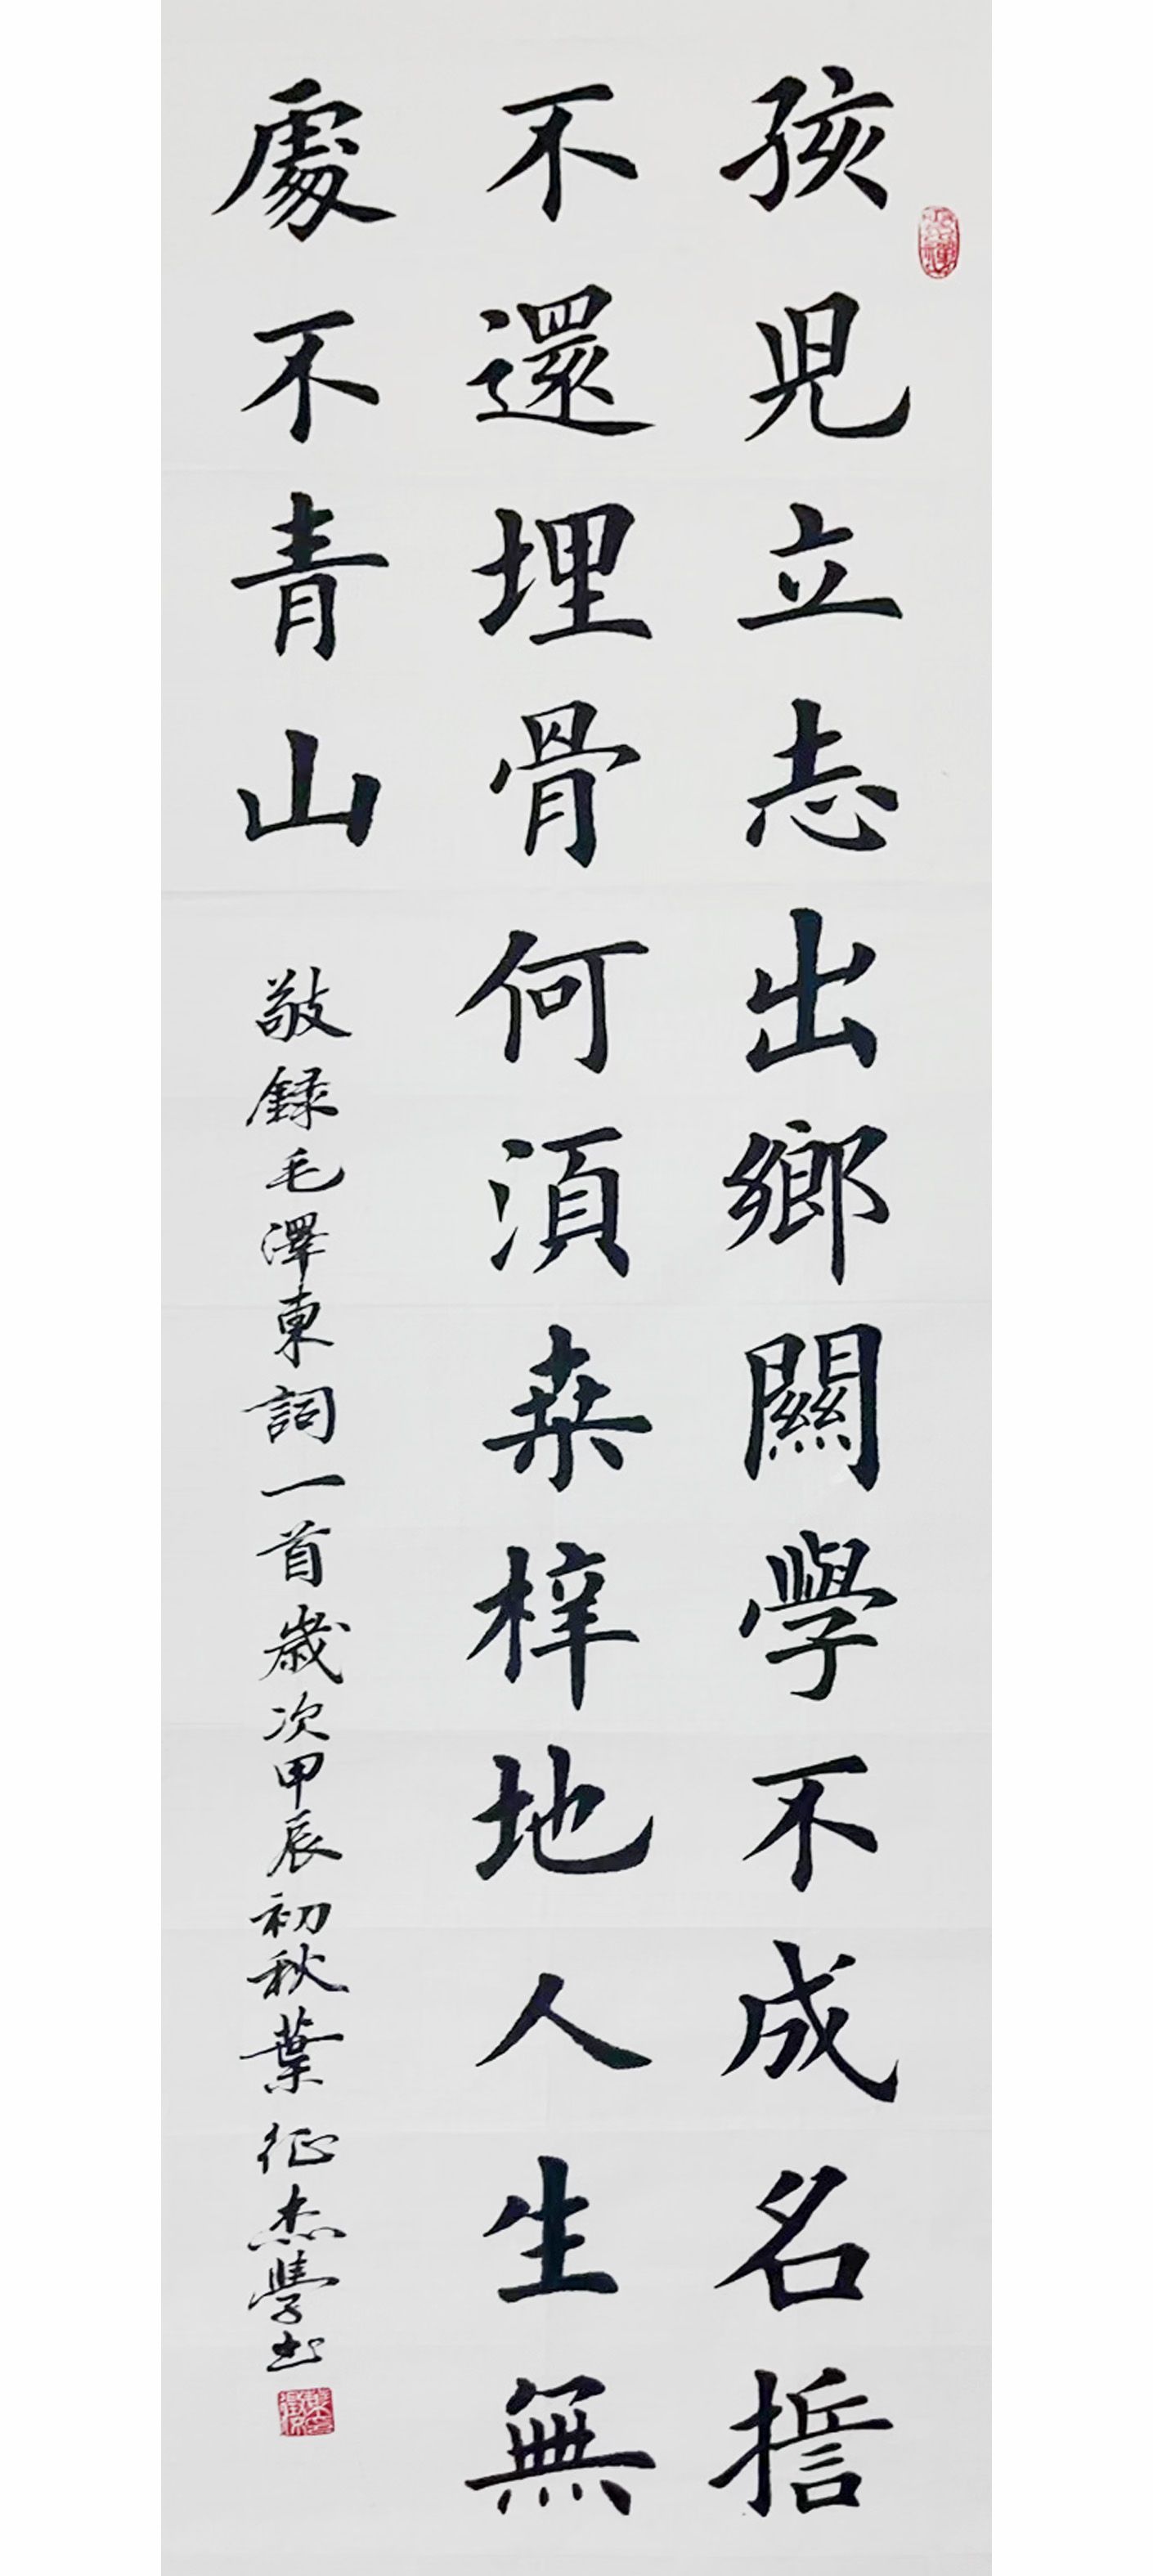 孩児立志出鄉關學不成名誓
不還埋骨何須桑梓地人生無
處不青山
敬録毛澤東詞一首歲次甲辰初秋葉征杰學书